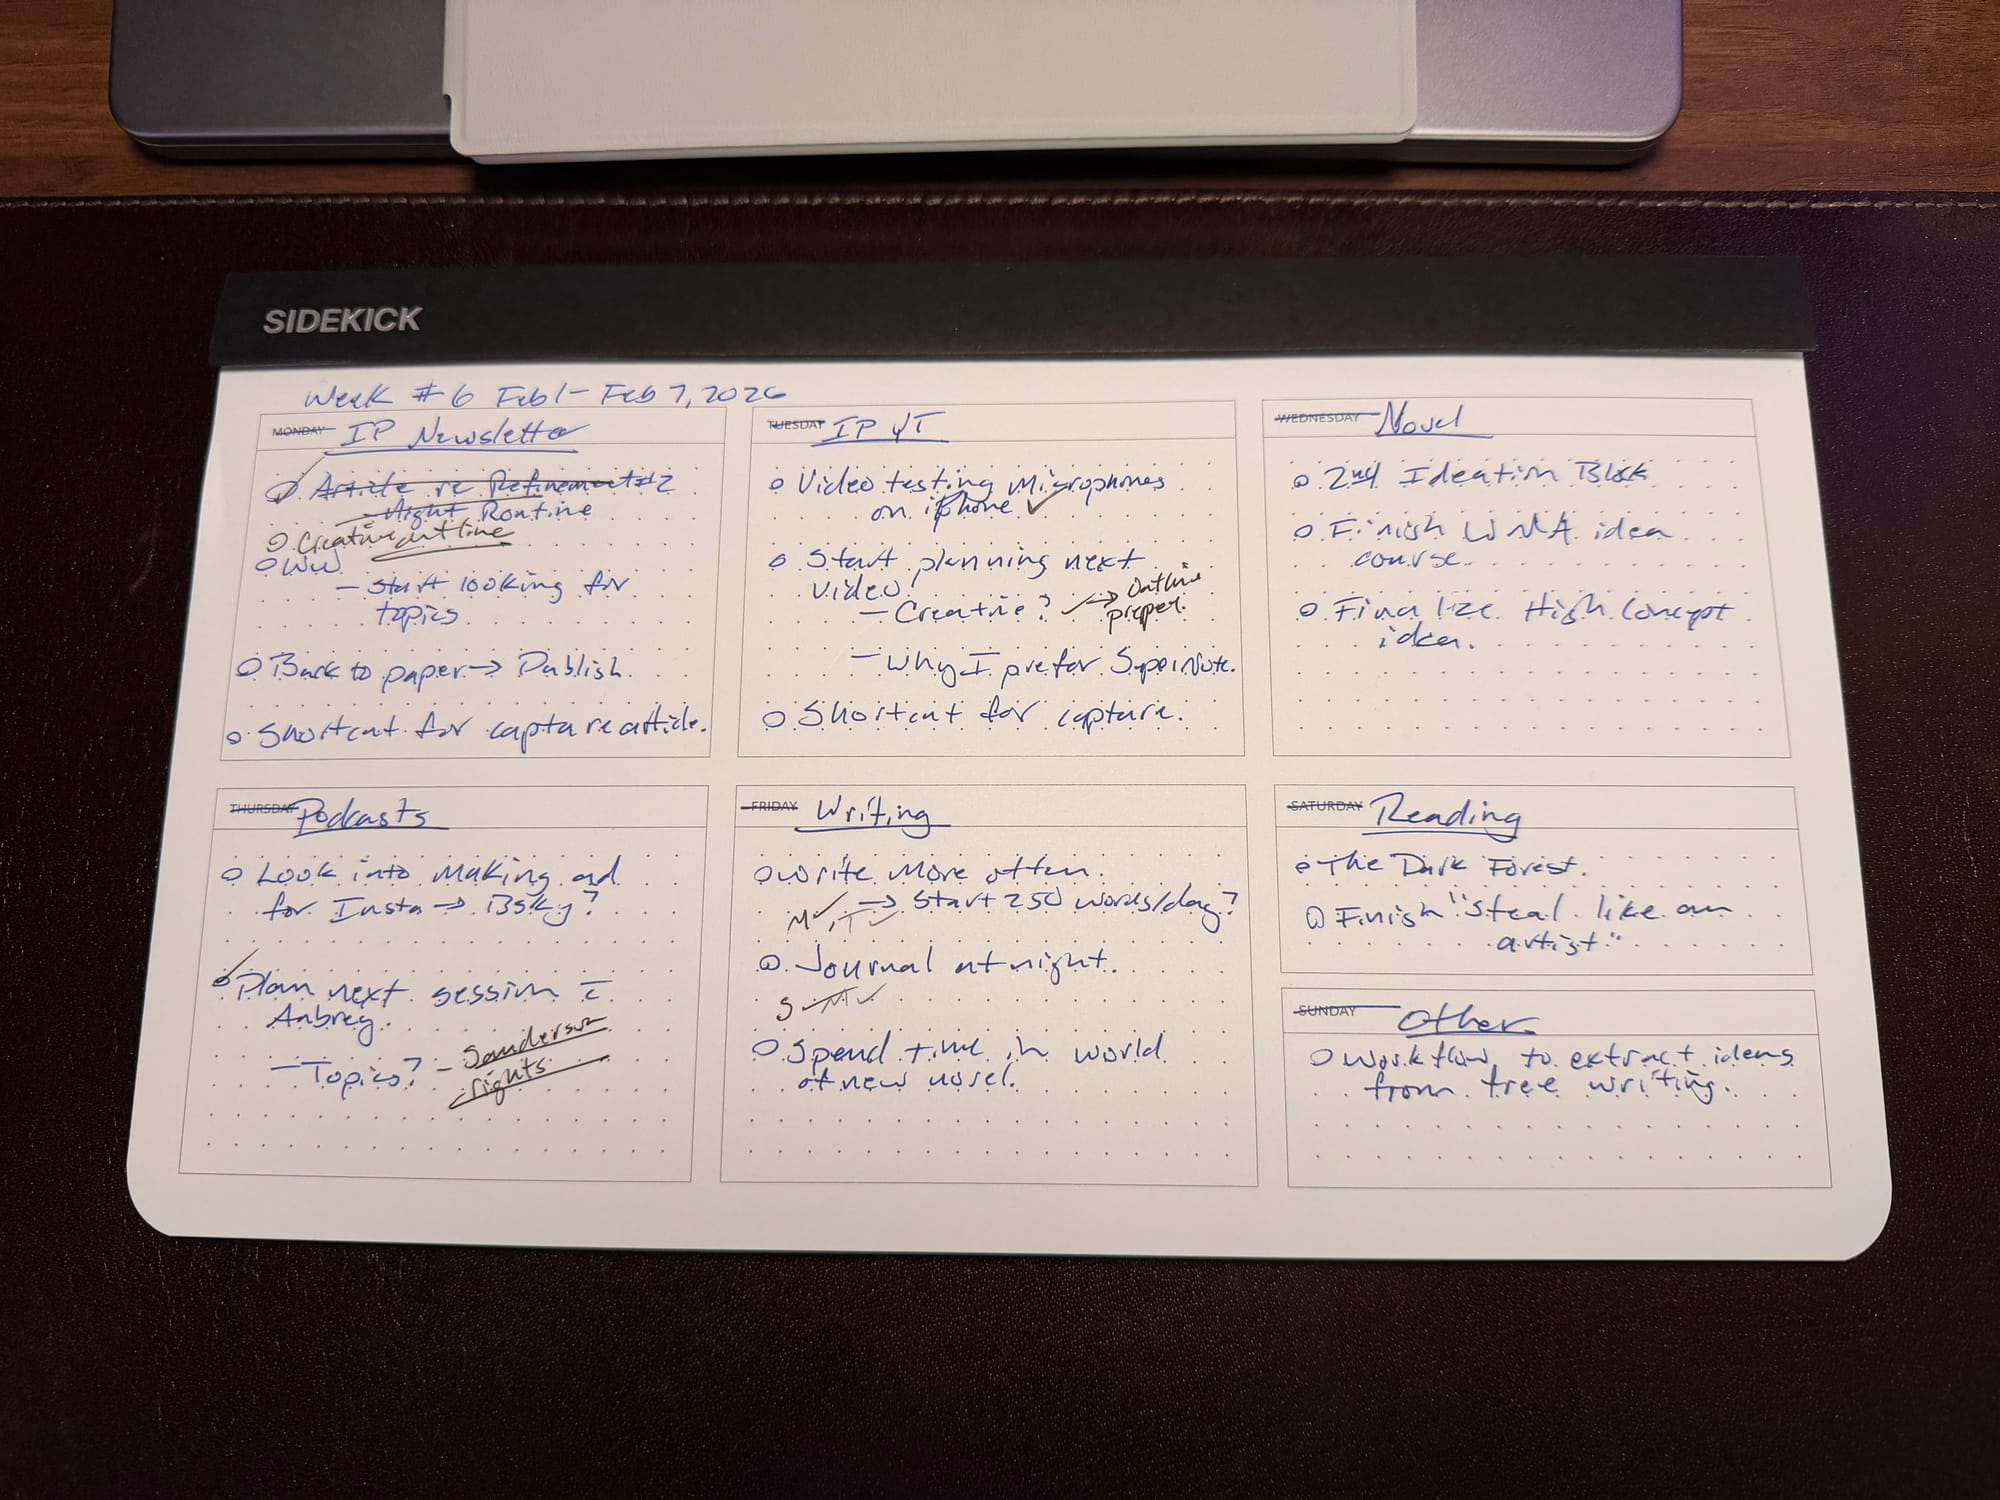 SIDEKICK
Week #6 Feb 1 - Feb 7, 2026
MONDAY IP Newsletter
Article re Refinement #2
→ Night Routine
Creative outline
WW
- Start looking for
topics
Back to paper → Publish
Shortcut for capture article.
TUESDAY IP YT
Video testing Microphones
on iphone ✓
Start planning next
video
- Creative? ✓ → Outline
prepper.
- Why I prefer Supernote.
Shortcut for capture.
WEDNESDAY Novel
2nd Ideation Block
Finish idea
course.
Finalize High Concept
idea.
THURSDAY Podcasts
Look into making ad
for Insta → BSky?
Plan next session c̄
Aubrey.
- Topics? - Sanderson
rights
FRIDAY Writing
Write More often.
→ Start 250 words/day?
M ✓, T ✓
Journal at night.
S - M ✓
Spend time in world
of new novel.
SATURDAY Reading
The Dark Forest.
Finish "Steal like an
artist"
SUNDAY Other
Workflow to extract ideas
from free writing.